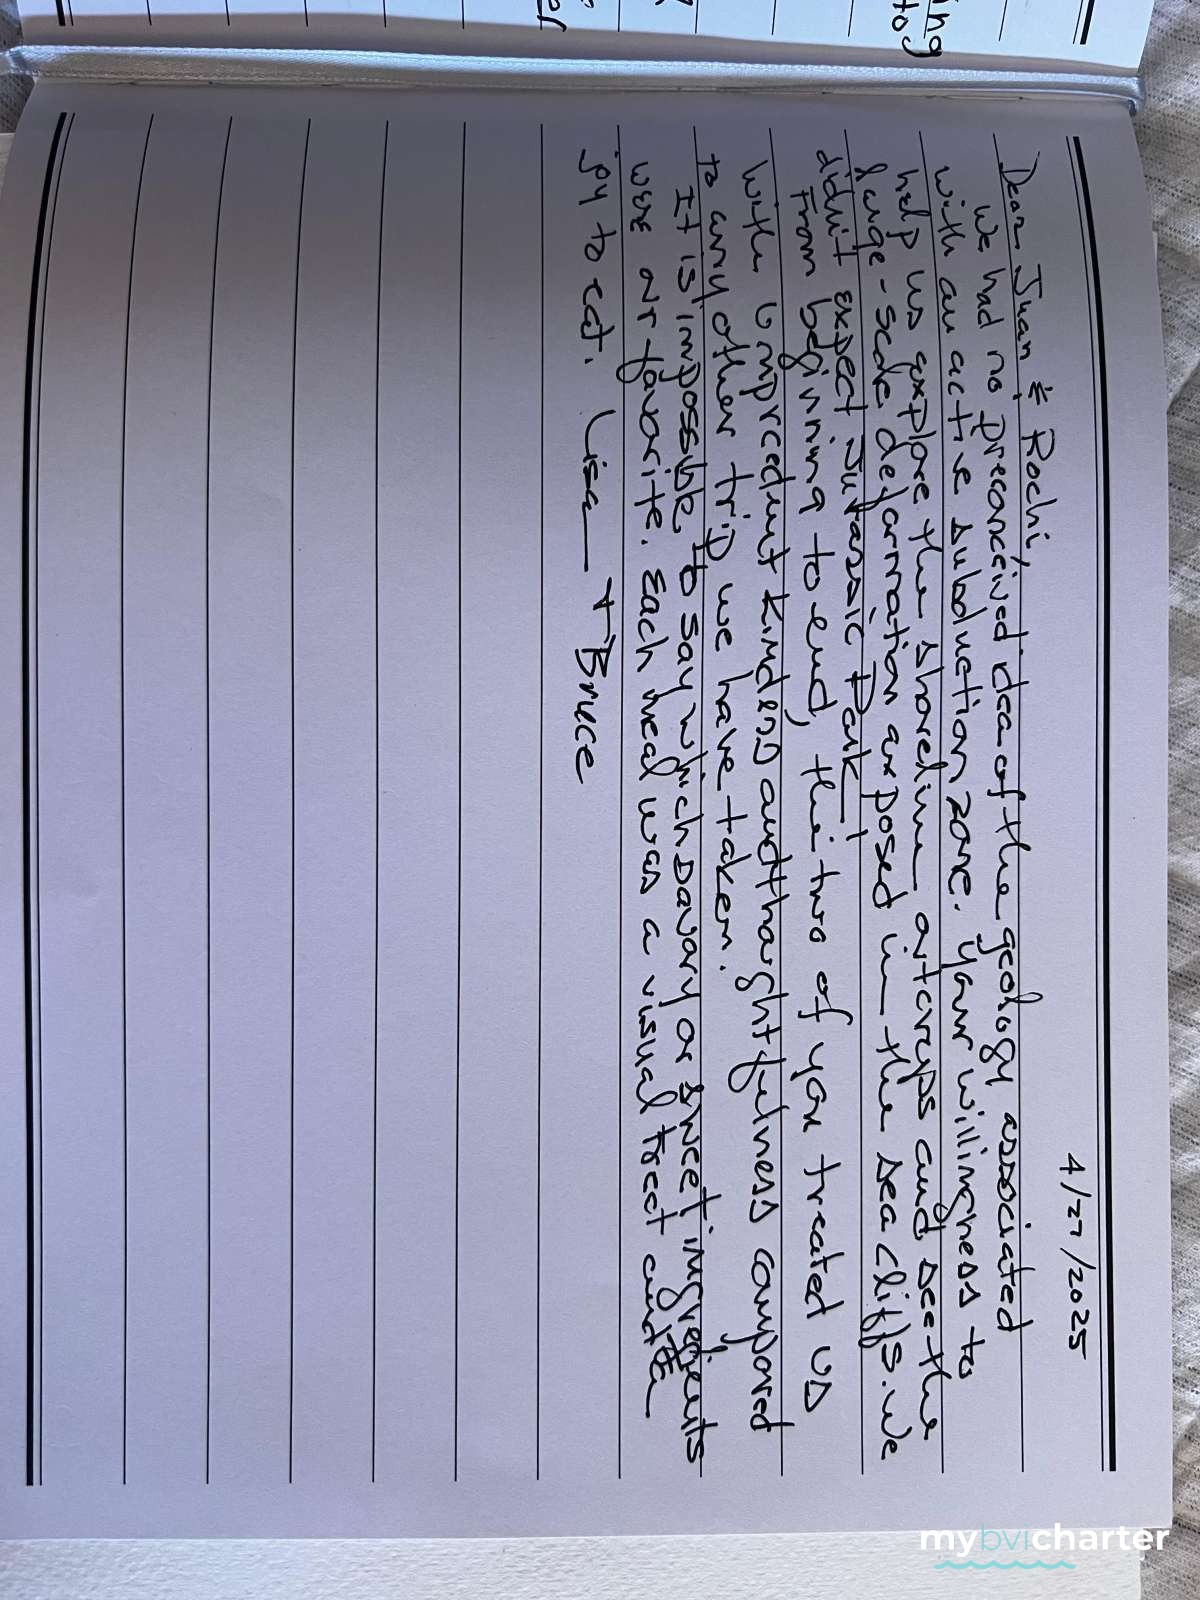 4/27/2025
Dear Juan & Rochi,
We had no preconceived idea of the geology associated
with an active subduction zone. Your willingness to
help us explore the shoreline outcrops and see the
large-scale deformation exposed in the sea cliffs. We
didn't expect Jurassic Park!
From beginning to end, the two of you treated us
with unprecedent kindess and thoughtfulness compared
to any other trip we have taken.
It is impossible to say which savory or sweet ingredients
were our favorite. Each meal was a visual treat and a
joy to eat. Lisa + Bruce
ing
to
mybvicharter